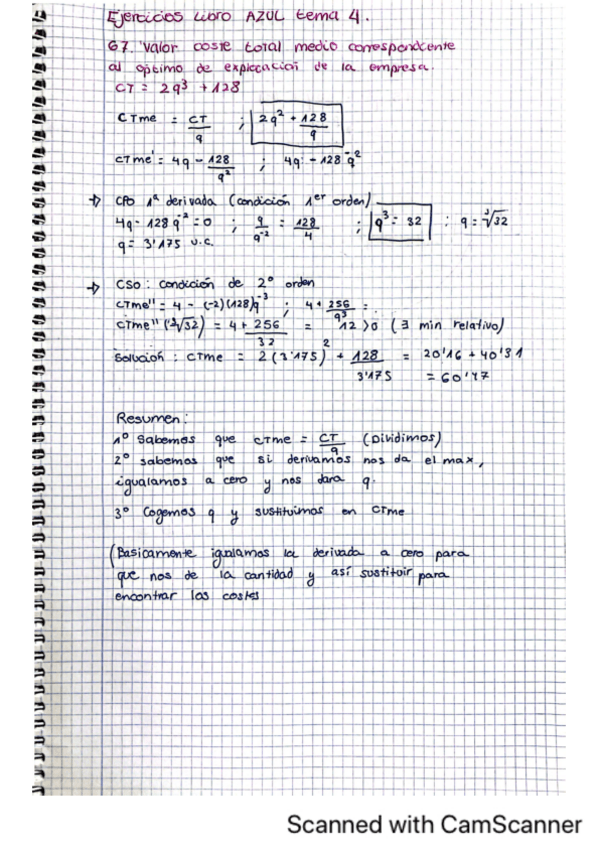 Ejercicios libro AZUL tema 4.
67. Valor coste total medio correspondiente
al óptimo de explotación de la empresa.
CT = 2q³ + 128
CTme = CT/q ; 2q² + 128/q
CTme' = 4q - 128/q² ; 4q - 128 q⁻²
→ CPO 1ª derivada (condición 1er orden)
4q - 128 q⁻² = 0 ; q/q⁻² = 128/4 ; q³ = 32 ; q = ³√32
q = 3'175 u.c.
→ CSO: condición de 2º orden
CTme'' = 4 - (-2)(128)q⁻³ ; 4 + 256/q³ =
CTme'' (³√32) = 4 + 256/32 = 12 > 0 (∃ min relativo)
Solución: CTme = 2(3'175)² + 128/3'175 = 20'16 + 40'31
= 60'47
Resumen:
1º Sabemos que CTme = CT/q (Dividimos)
2º sabemos que si derivamos nos da el max,
igualamos a cero y nos dara q.
3º Cogemos q y sustituimos en CTme
(Basicamente igualamos la derivada a cero para
que nos de la cantidad y así sustituir para
encontrar los costes
Scanned with CamScanner